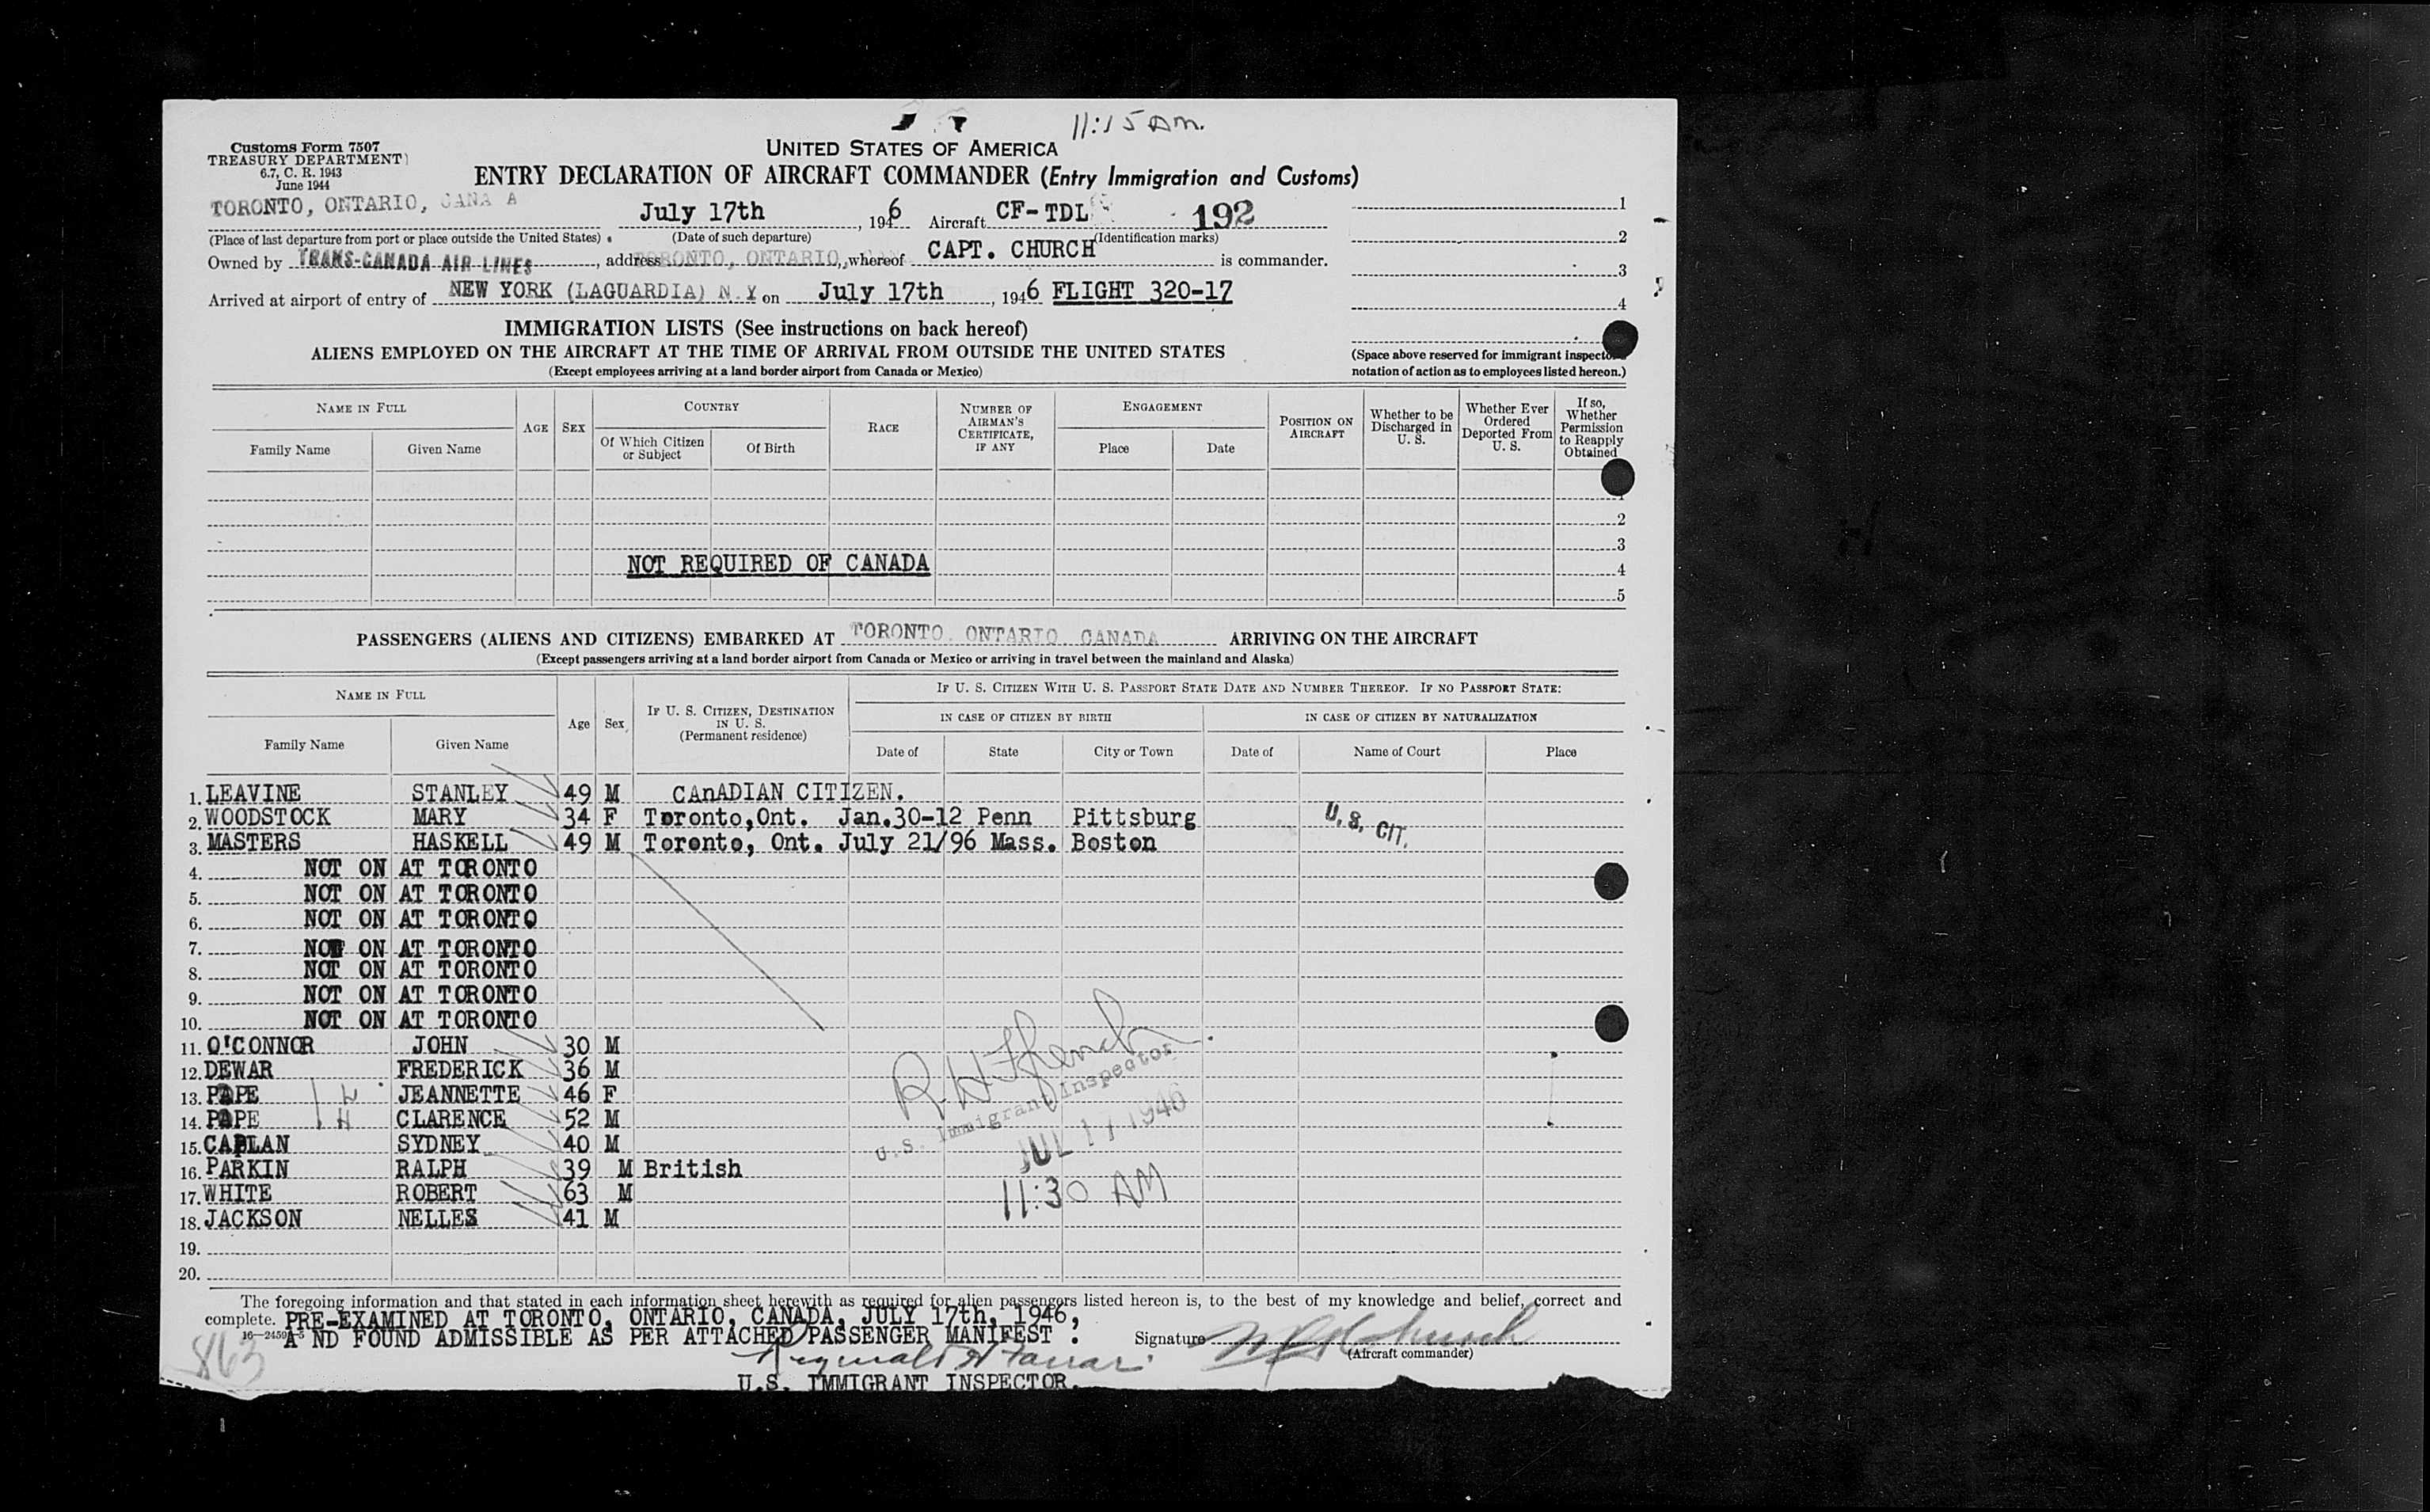 11:15 AM.
Customs Form 7507
TREASURY DEPARTMENT
6.7, C. R. 1943
June 1944
UNITED STATES OF AMERICA
ENTRY DECLARATION OF AIRCRAFT COMMANDER (Entry Immigration and Customs)
TORONTO, ONTARIO, CANA A July 17th, 1946 Aircraft CF-TDL 192
(Place of last departure from port or place outside the United States) (Date of such departure) (Identification marks)
Owned by TRANS-CANADA AIR LINES, address TORONTO, ONTARIO, whereof CAPT. CHURCH is commander.
Arrived at airport of entry of NEW YORK (LAGUARDIA) N.Y on July 17th, 1946 FLIGHT 320-17
1
2
3
4
IMMIGRATION LISTS (See instructions on back hereof)
ALIENS EMPLOYED ON THE AIRCRAFT AT THE TIME OF ARRIVAL FROM OUTSIDE THE UNITED STATES
(Except employees arriving at a land border airport from Canada or Mexico)
(Space above reserved for immigrant inspector's
notation of action as to employees listed hereon.)
NAME IN FULL
Family Name Given Name
AGE SEX
COUNTRY
Of Which Citizen or Subject Of Birth
RACE
NUMBER OF AIRMAN'S CERTIFICATE, IF ANY
ENGAGEMENT
Place Date
POSITION ON AIRCRAFT
Whether to be Discharged in U. S.
Whether Ever Ordered Deported From U. S.
If so, Whether Permission to Reapply Obtained
2
3
NOT REQUIRED OF CANADA
4
5
PASSENGERS (ALIENS AND CITIZENS) EMBARKED AT TORONTO ONTARIO CANADA ARRIVING ON THE AIRCRAFT
(Except passengers arriving at a land border airport from Canada or Mexico or arriving in travel between the mainland and Alaska)
NAME IN FULL
Family Name Given Name
Age Sex
IF U. S. CITIZEN, DESTINATION IN U. S. (Permanent residence)
IF U. S. CITIZEN WITH U. S. PASSPORT STATE DATE AND NUMBER THEREOF. IF NO PASSPORT STATE:
IN CASE OF CITIZEN BY BIRTH IN CASE OF CITIZEN BY NATURALIZATION
Date of State City or Town Date of Name of Court Place
1. LEAVINE STANLEY 49 M CAnADIAN CITIZEN.
2. WOODSTOCK MARY 34 F Toronto,Ont. Jan.30-12 Penn Pittsburg U.S. CIT.
3. MASTERS HASKELL 49 M Toronto, Ont. July 21/96 Mass. Boston
4. NOT ON AT TORONTO
5. NOT ON AT TORONTO
6. NOT ON AT TORONTO
7. NOT ON AT TORONTO
8. NOT ON AT TORONTO
9. NOT ON AT TORONTO
10. NOT ON AT TORONTO
11. O'CONNOR JOHN 30 M
12. DEWAR FREDERICK 36 M
13. PAPE JEANNETTE 46 F
14. PAPE H CLARENCE 52 M
15. CAPLAN SYDNEY 40 M
16. PARKIN RALPH 39 M British
17. WHITE ROBERT 63 M
18. JACKSON NELLES 41 M
19.
20.
U.S. Immigrant Inspector
JUL 17 1946
11:30 AM
The foregoing information and that stated in each information sheet herewith as required for alien passengers listed hereon is, to the best of my knowledge and belief, correct and
complete. PRE-EXAMINED AT TORONTO, ONTARIO, CANADA, JULY 17th, 1946,
A ND FOUND ADMISSIBLE AS PER ATTACHED PASSENGER MANIFEST . Signature
(Aircraft commander)
863
U.S. IMMIGRANT INSPECTOR.